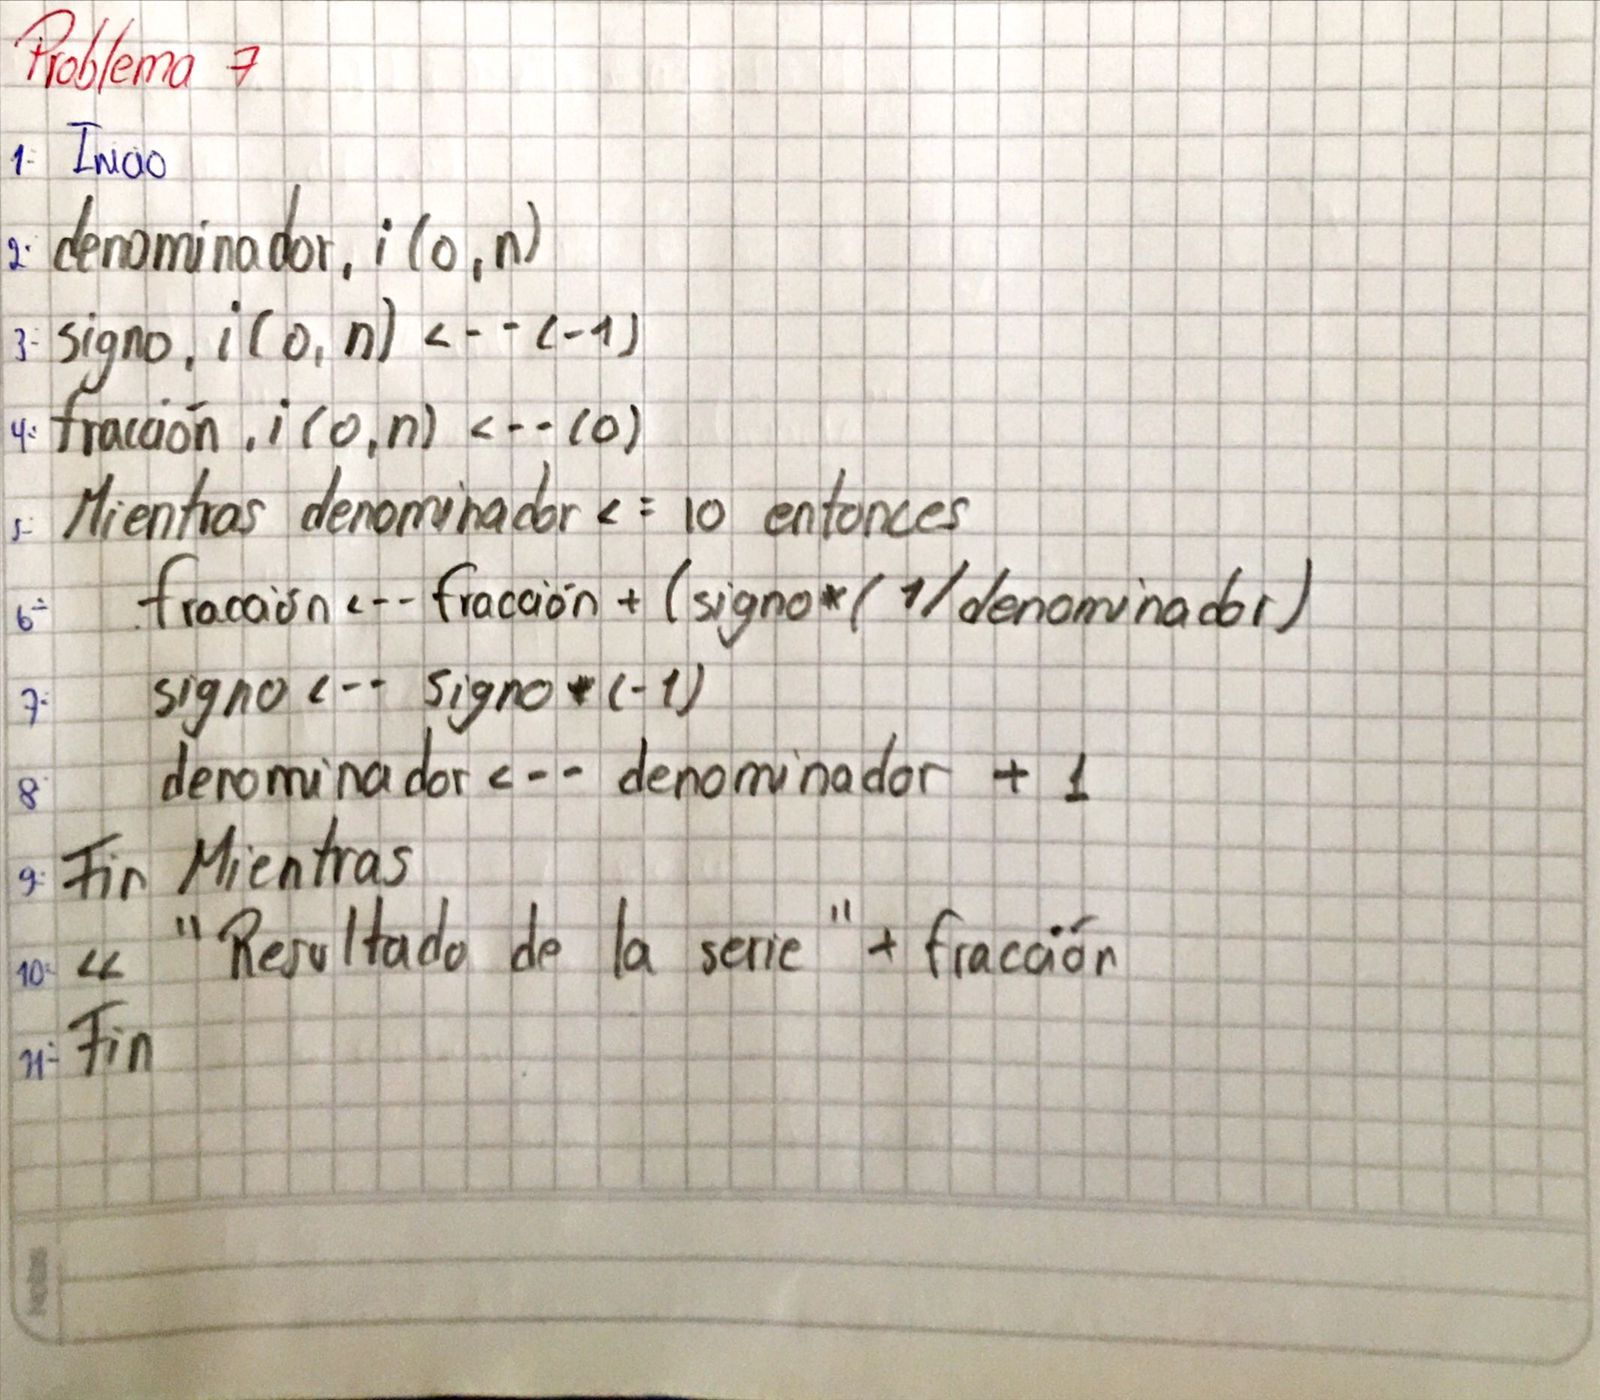 Problema 7
1- Inicio
2- denominador, i (0, n)
3- signo, i (0, n) <-- (-1)
4- fracción, i (0, n) <-- (0)
5- Mientras denominador <= 10 entonces
6- fracción <-- fracción + (signo*( 1/denominador)
7- signo <-- signo * (-1)
8 denominador <-- denominador + 1
9- Fin Mientras
10- << "Resultado de la serie" + fracción
11- Fin
Notes